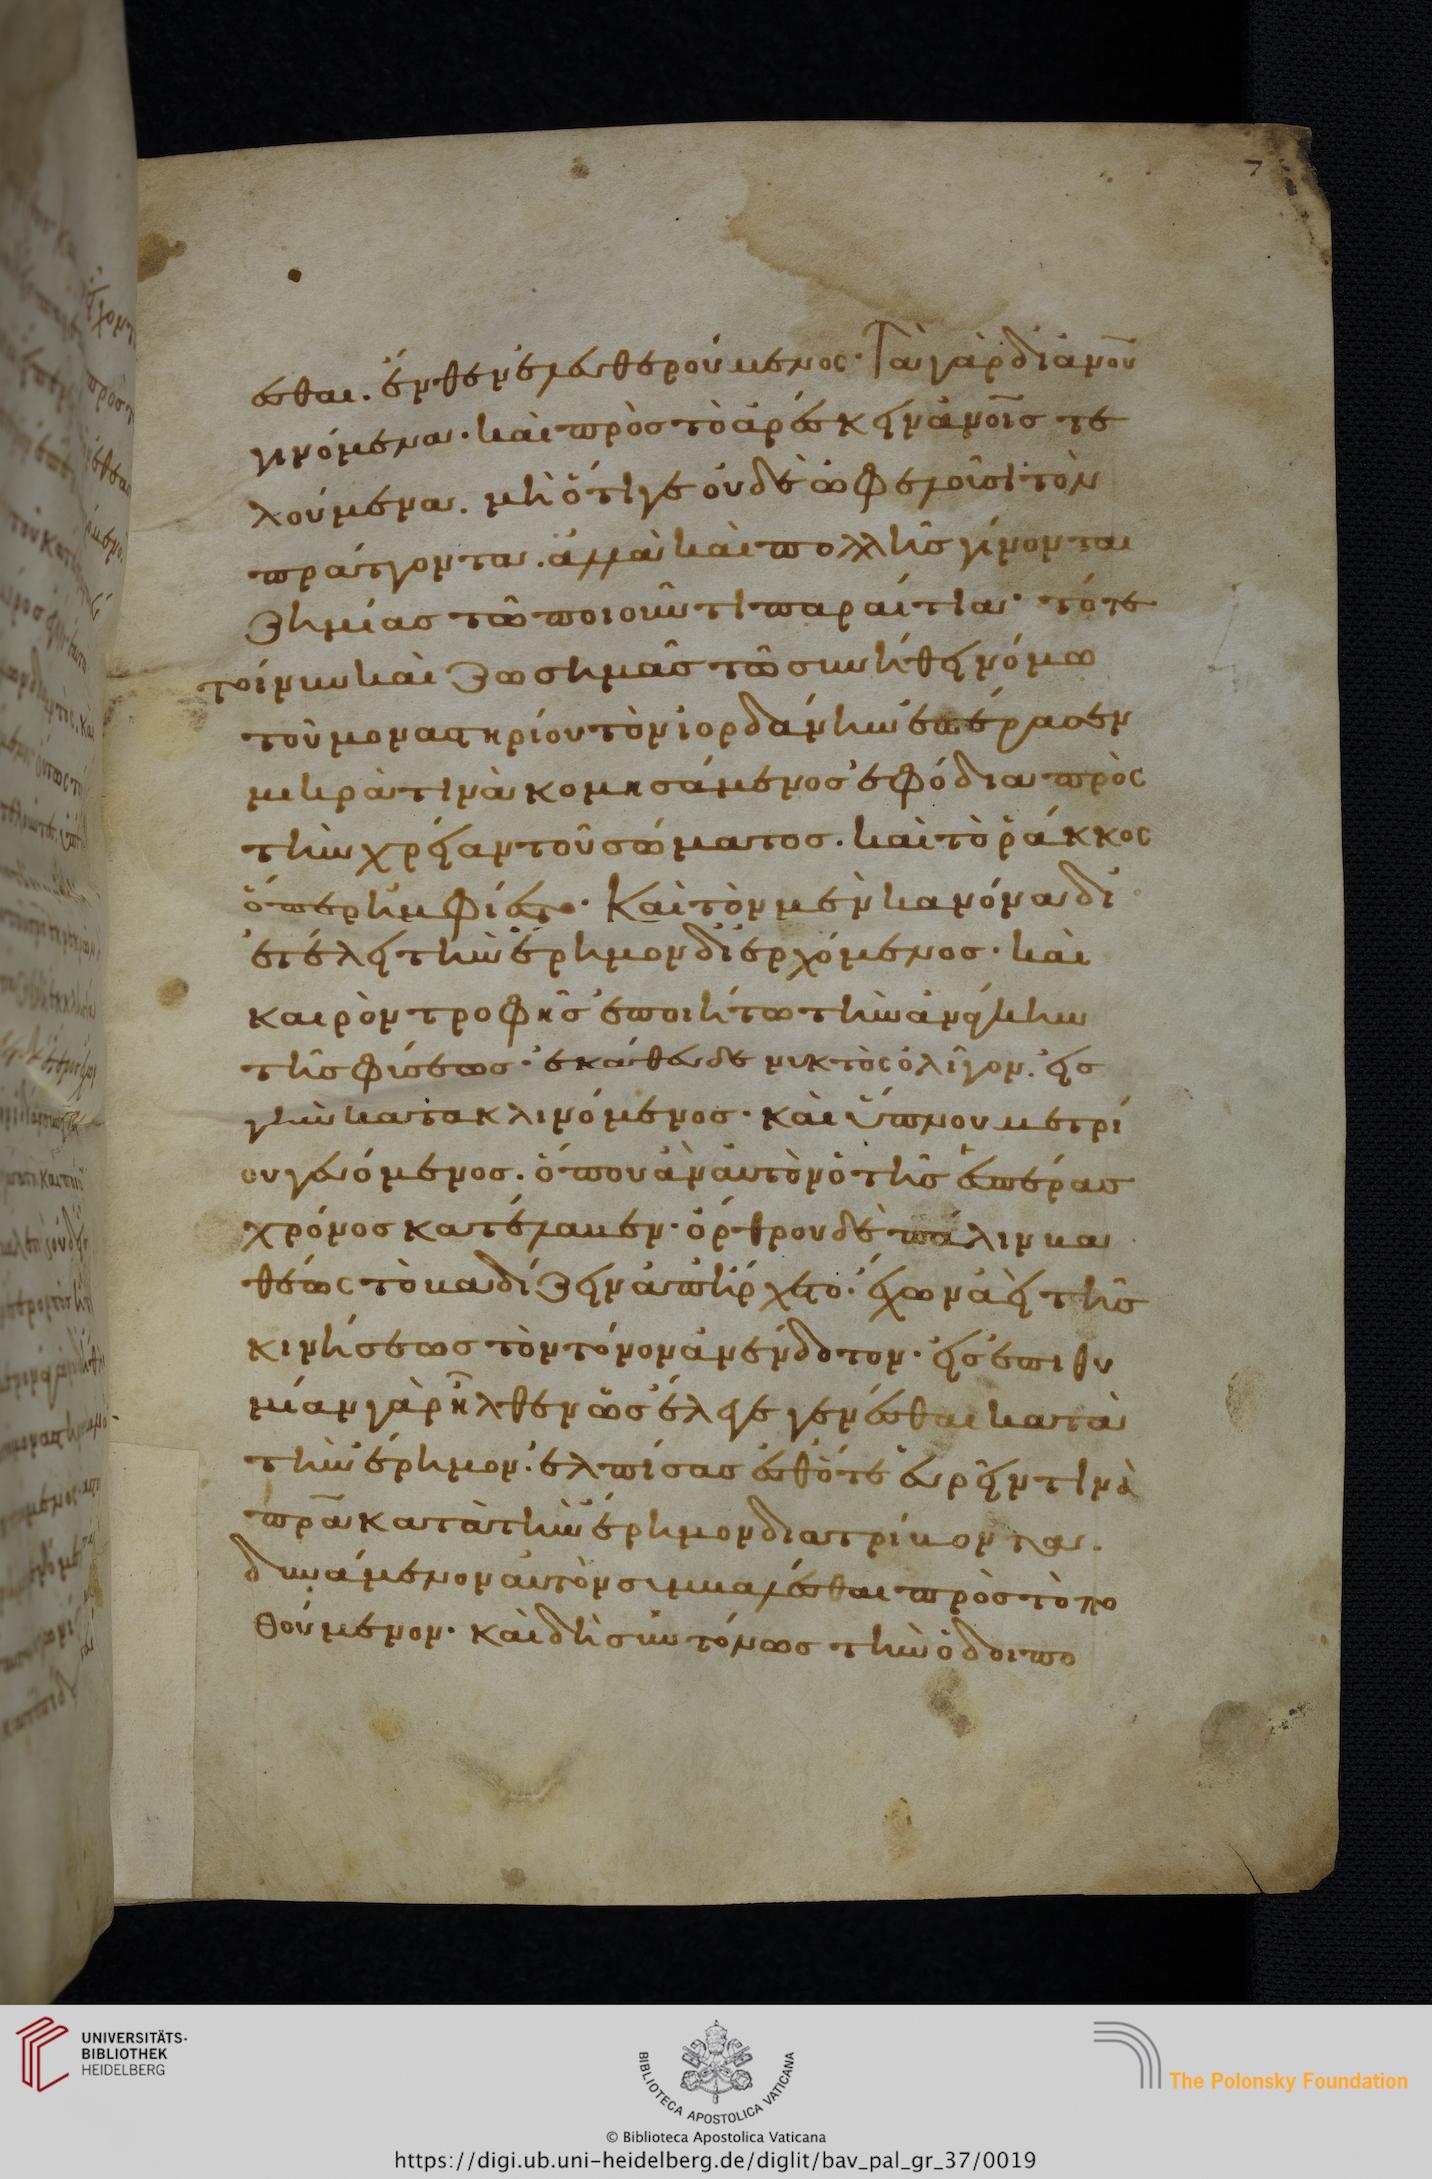 7
εσθαι. ἔνθεν ἐλευθερούμενος· Τὰ γὰρ δι' ἀνου
γινόμενα· καὶ πρὸς τὸ ἀρέσκειν ἀνοις τε
λούμενα. μὴ ὅτι γε οὐδὲ ὠφελοῦσι τὸν
πράττοντα. ἀλλὰ καὶ πολλῆς γίνονται
ζημίας τῶ ποιοῦντι παραίτια· τότε
τοίνυν καὶ Ζωσημᾶς τῶ συνήθει νόμω
τοῦ μοναστηρίου τὸν ἰορδάνην ἐπέρασεν
μικρὰ τινὰ κομησάμενος ἐφόδια πρὸς
τὴν χρείαν τοῦ σώματος. καὶ τὸ ῥάκκος
ὅπερ ἠμφίεστο· Καὶ τὸν μὲν κανόνα δι
ετέλει τὴν ἔρημον διερχόμενος· καὶ
καιρὸν τροφῆς ἐποιήτω τὴν ἀνάγκην
τῆς φύσεως· ἐκάθευδε νυκτὸς ὀλίγον. εἰς
γῆν κατακλινόμενος· καὶ ὕπνου μετρί
ου γευόμενος. ὅπου ἂν αὐτὸν ὁ τῆς ἑσπέρας
χρόνος κατέλαβεν· ὄρθρου δὲ πάλιν κα
θεὼς τὸ βαδίζειν ἀπήρχετο· ἔχων ἀεὶ τῆς
κινήσεως τὸν τόνον ἀνένδοτον· εἰς ἐπιθυ
μίαν γὰρ ἦλθεν ὡς ἔλεγε γενέσθαι κατὰ
τὴν ἔρημον· ἐλπίσας ἐσθότε εὑρεῖν τινὰ
πρα κατὰ τὴν ἔρημον διατρίβοντα.
δυνάμενον αὐτὸν συμβαλέσθαι πρὸς τὸ πο
θούμενον· καὶ δὴ συντόνως τὴν ὁδοιπο
UNIVERSITÄTS-
BIBLIOTHEK
HEIDELBERG
BIBLIOTECA APOSTOLICA VATICANA
The Polonsky Foundation
© Biblioteca Apostolica Vaticana
https://digi.ub.uni-heidelberg.de/diglit/bav_pal_gr_37/0019